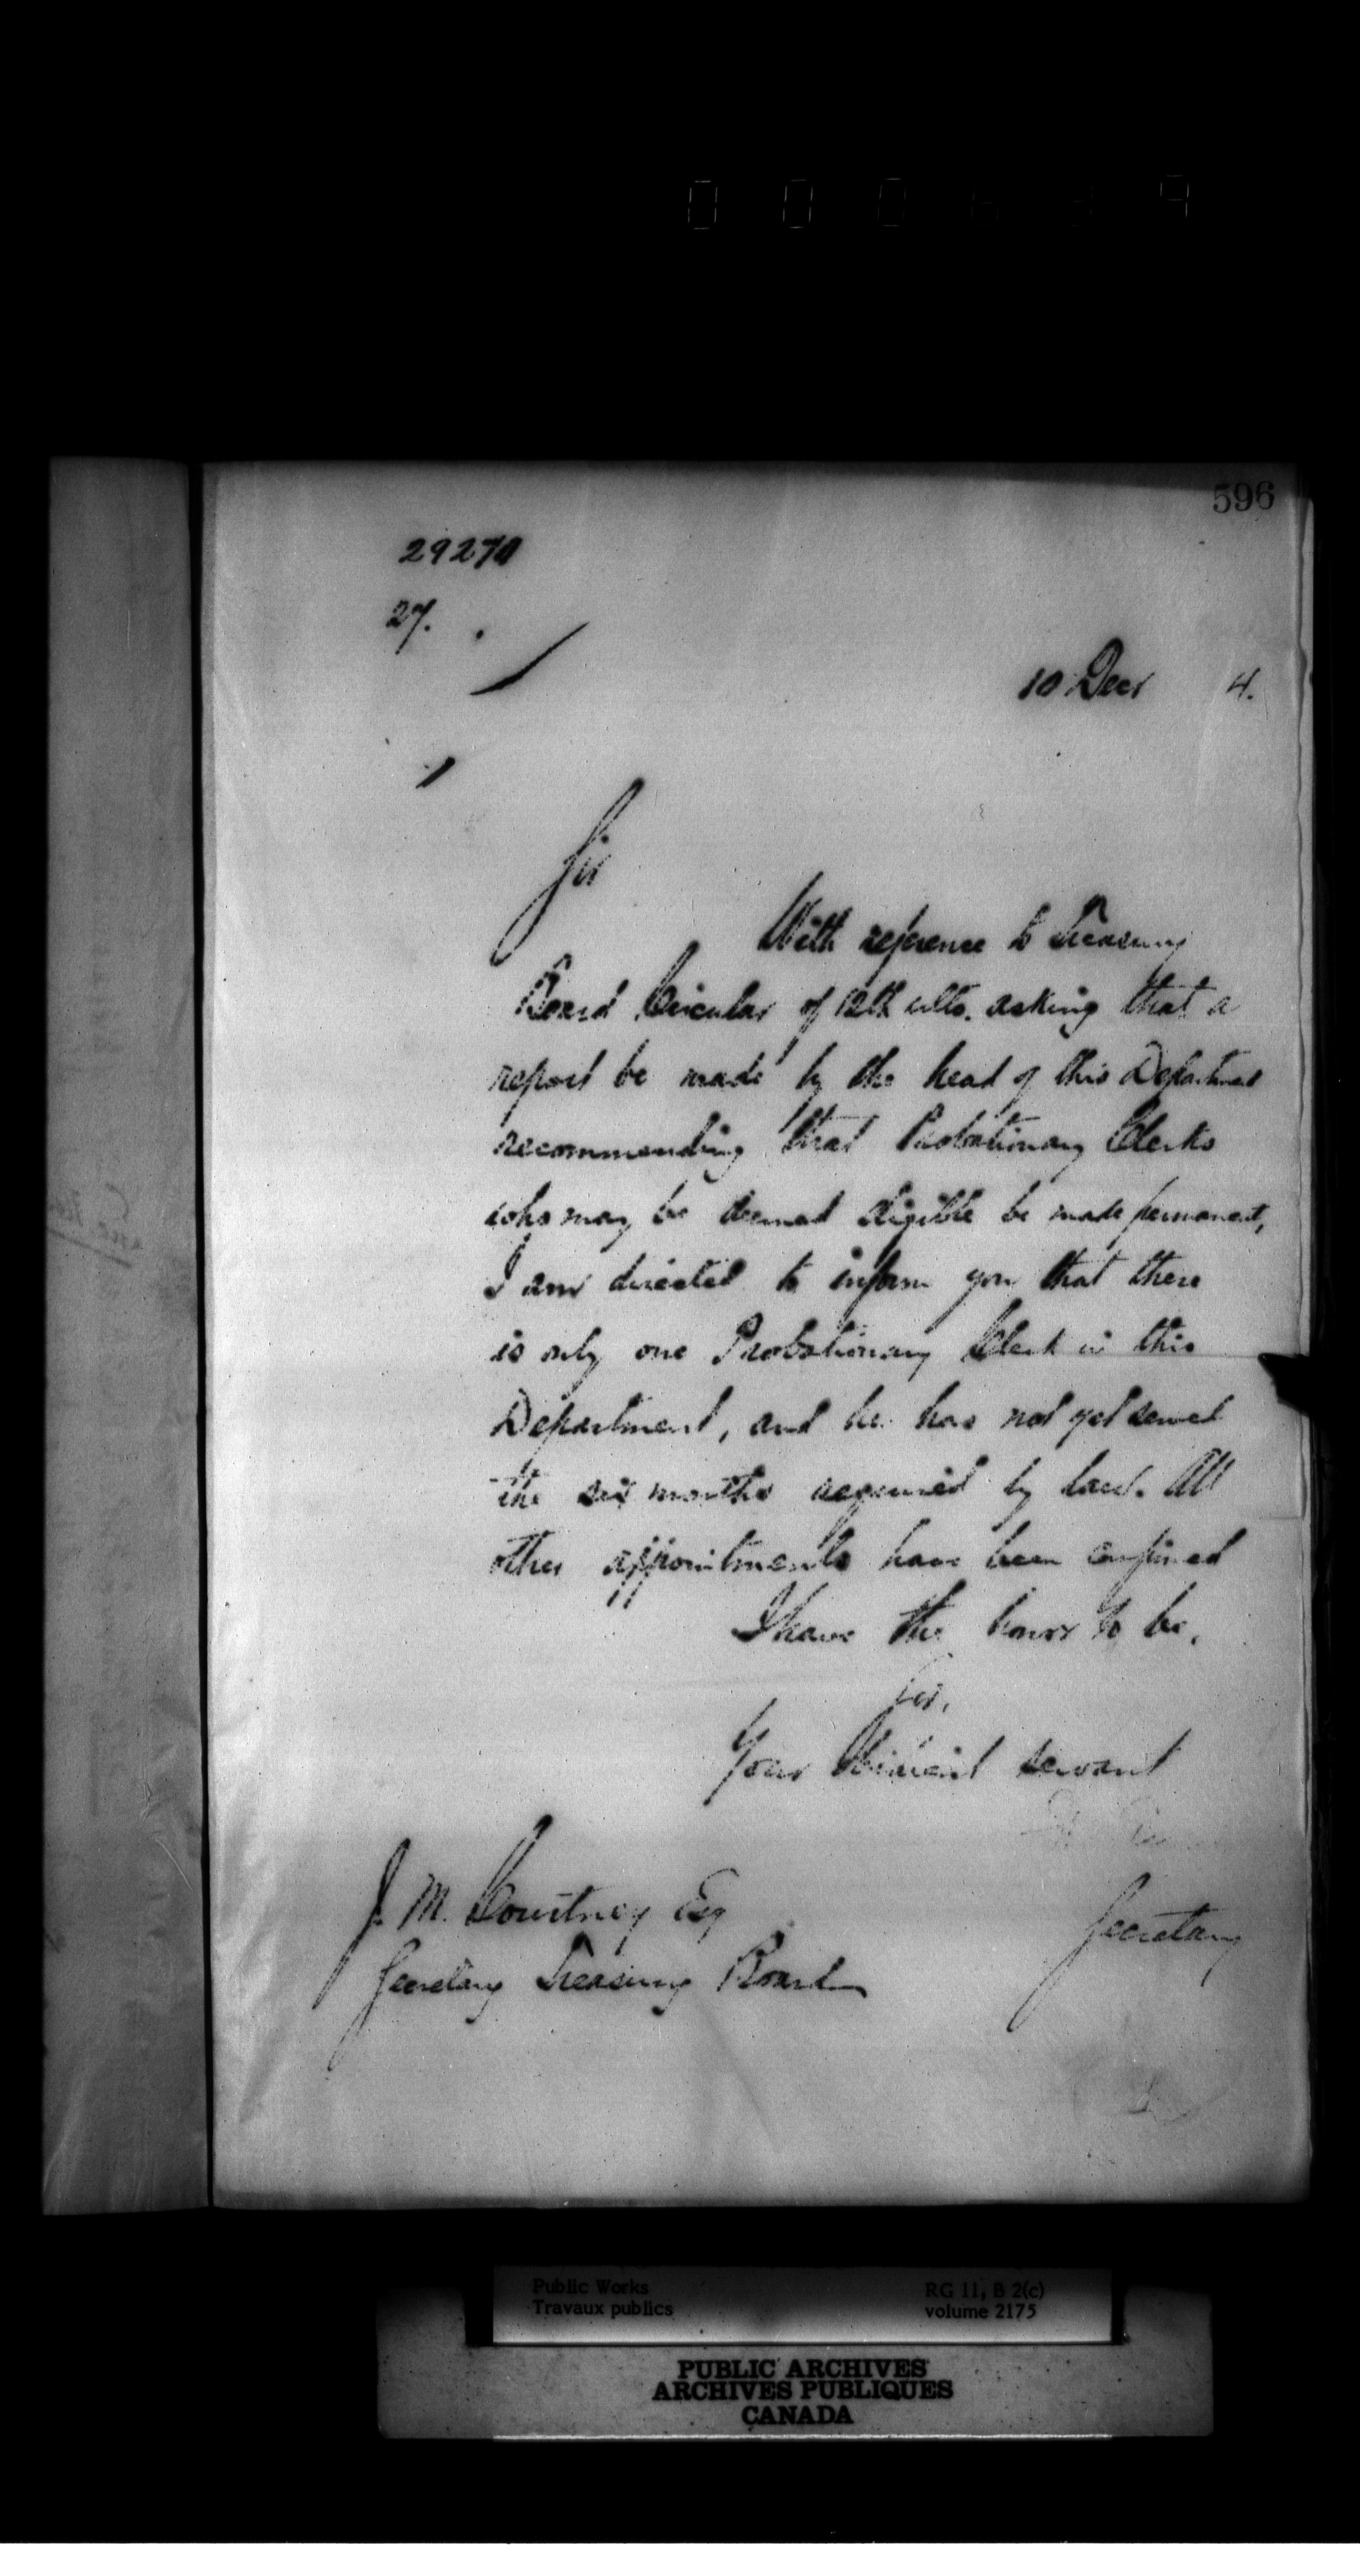 596
29270
27.
10 Decr 4.
Sir
With reference to Treasury
Board Circular of 12th ulto. asking that a
report be made by the head of this Department
recommending that Probationary Clerks
who may be deemed eligible be made permanent,
I am directed to inform you that there
is only one Probationary Clerk in this
Department, and he has not yet served
the six months required by law. All
other appointments have been confirmed
I have the honor to be,
Sir,
Your obedient servant
Secretary
J. M. Courtney Esq
Secretary Treasury Board
Public Works
Travaux publics
RG 11, B 2(c)
volume 2175
PUBLIC ARCHIVES
ARCHIVES PUBLIQUES
CANADA